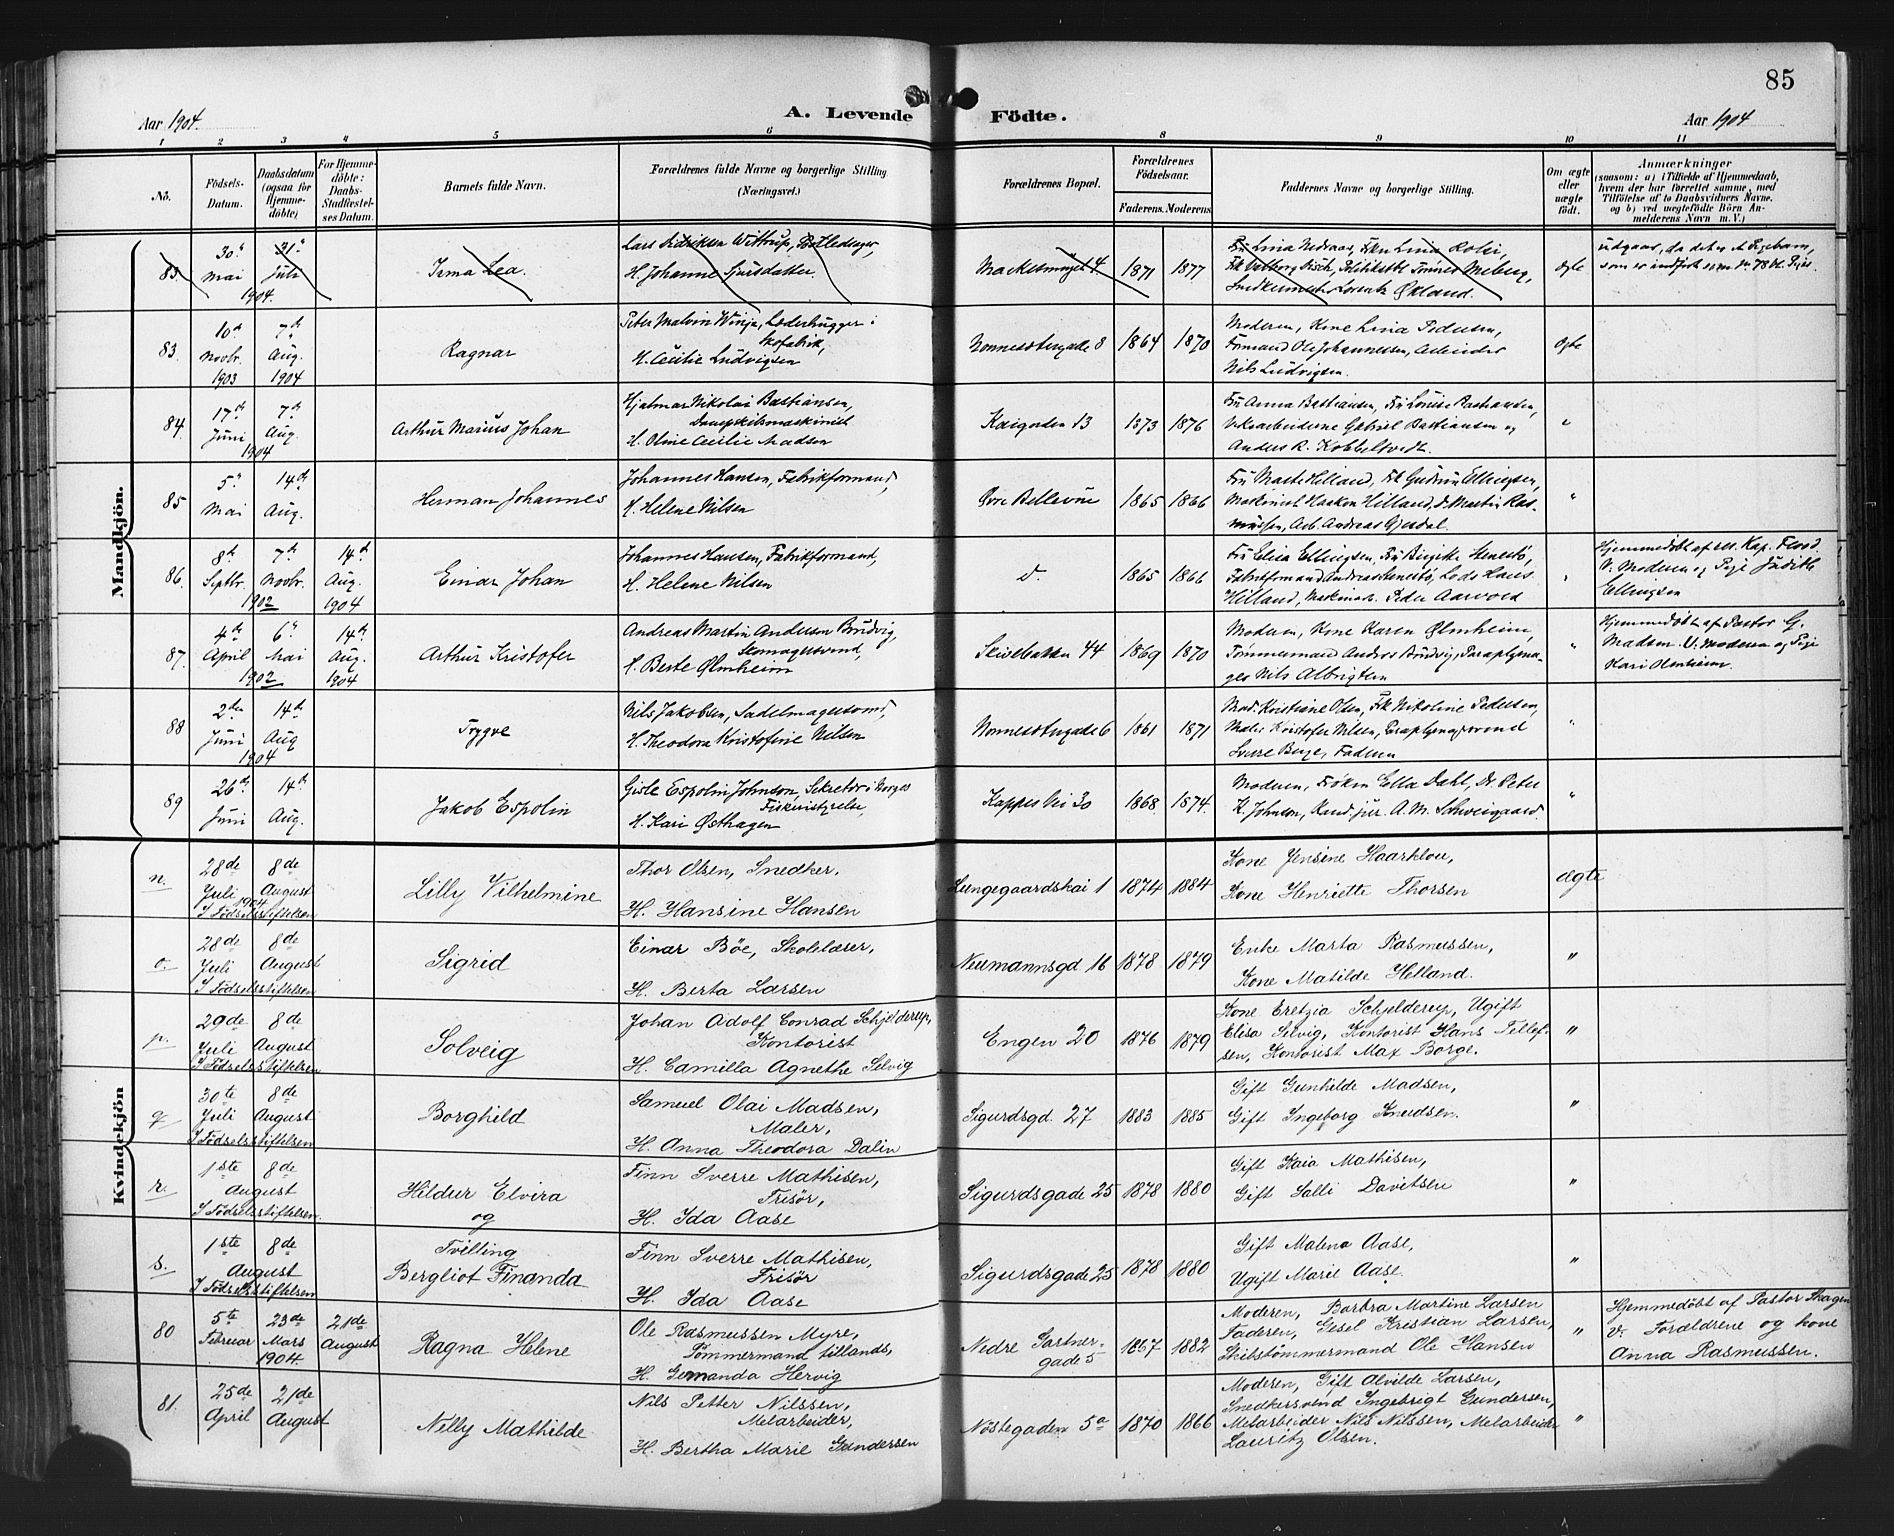 85
Aar 1904.
A. Levende Födte.
Aar 1904
1 2 3 4 5 6 8 9 10 11
No.
Födsels-Datum.
Daabsdatum (ogsaa for Hjemme-döbte)
For Hjemme-döbte: Daabs-Stadfæstel-ses Datum.
Barnets fulde Navn.
Forældrenes fulde Navne og borgerlige Stilling (Næringsvei.)
Forældrenes Bopæl.
Forældrenes Födselsaar.
Faderens. Moderens.
Faddernes Navne og borgerlig Stilling.
Om ægte eller uægte födt.
Anmærkninger
(saasom: a) i Tilfælde af Hjemmedaab, hvem der har forrettet samme, med Tilföielse af to Daabsvidners Navne. og b) ved uægtefödte Börn An-melderens Navn m. V.)
Mandkjön.
83. 30" Mai 31" Juli 1904.
Irma Lea.
H. Johanne Sjursdatter.
1871 1877
Lorentz Økland.
ægte
83. 10de Novbr. 1903 7de Aug. 1904
Ragnar
H. Cecilie Ludvigsen
Nonnesetergade 8 1864 1870
Moderen, Kone Lina Pedersen,
Formand Ole Johannessen, Arbeider
Nils Ludvigsen.
ægte
84. 17de Juni 7de Aug. 1904
Arthur Marius Johan
Hjalmar Nikolai Bastiansen,
Dampskibsmaskinist
H. Oline Cecilie Madsen
Kaigaden 13 1873 1876
Fru Anna Bastiansen, Fru Louise Bastiansen,
Gabriel Bastiansen og
Anders R. Kobbeltvedt.
"
85 5" Mai 14de Aug.
Herman Johannes
Johannes Hansen, Fabrikformand,
H. Helene Nilsen
Øvre Bellevue 1865 1866
Fru Marte Hilland, Frk Gudrun Ellingsen,
Maskinist Haakon Hilland, d. Martin Ras-
mussen, Arb. Andreas Gjerdal.
"
86. 8de Septbr. 7de Novbr. 1902 14de Aug. 1904
Einar Johan
Johannes Hansen, Fabrikformand,
H. Helene Nilsen
d. 1865 1866
Fru Elisa Ellingsen, Fru Birgitte Stenestø,
Fabrikformand Andreas Stenestø, Lods Hans
Hilland, Maskinarb. Peder Aarvold
"
Hjemmedøbt af res. Kap. Flood
V. Moderen og Pige Judith
Ellingsen
87. 4de April 6" Mai 1902 14de Aug. 1904
Arthur Kristofer
Andreas Martin Andersen Brudvig,
Skomagersvend,
H. Berte Ølmheim
Skivebakken 44 1869 1870
Moderen, Kone Karen Ølmheim,
Tømmermand Anders Brudvig, Paraplyma-
ger Nils Albrigtsen
"
Hjemmedøbt af Pastor G.
Madsen V: Moderen og Pige
Kari Olmheim.
88 2den Juni 14de Aug 1904
Trygve
Nils Jakobsen, Sadelmagersvend,
H. Theodora Kristofine Nilsen
Nonnesetergade 6 1861 1871
Mad. Kristiane Olsen, Frk Nikoline Pedersen,
Maler Kristofer Nilsen, Paraplymagersvend
Sverre Berge, Faderen
"
89 26de Juni 14de Aug.
Jakob Espolin
Gisle Espolin Johnson, Sekretær i Norges
Fiskeristyrelse,
H. Kari Østhagen
Kappes Vei 30 1868. 1874.
Moderen, Frøken Ella Dahl, Dr. Peter
K. Johnson, Kand. jur. A. M. Schweigaard.
"
Kvindekjön
n. 28de Juli 8de August 1904 I Fødselsstiftelsen
Lilly Vilhelmine
Thor Olsen, Snedker.
H. Hansine Hansen
Lungegaardskai 1 1874 1884
Kone Jensine Haarklou,
Kone Henriette Thorsen
ægte
o. 28de Juli 8de August I Fødselsstiftelsen
Sigrid
Einar Bøe, Skolelærer,
H. Berta Larsen
Neumannsgd 16 1878 1879
Enke Marta Rasmussen,
Kone Matilde Hetland.
"
p. 29de Juli 8de August I Fødselsstiftelsen
Solveig
Johan Adolf Conrad Schjelderup,
Kontorist
H. Camilla Agnethe Selvig
Engen 20 1876 1879
Kone Eretzia Schjelderup, Ugift
Elisa Selvig, Kontorist Hans Tellef-
sen, Kontorist Max Borge.
"
q. 30te Juli 8de August I Fødselsstiftelsen
Borghild
Samuel Olai Madsen,
Maler,
H. Anna Theodora Dalin
Sigurdsgd. 27 1883 1885
Gift Gunhilde Madsen,
Gift Ingeborg Knudsen.
"
r. 1ste 8de August I Fødselsstiftelsen.
Hildur Elvira
og
Finn Sverre Mathisen,
Frisør,
H. Ida Aase
Sigurdsgade 25 1878 1880
Gift Kaia Mathisen,
Gift Salli Davitsen
"
s. 1ste 8de August I Fødselsstiftelsen
Tvilling
Bergliot Finanda
Finn Sverre Mathisen,
Frisør
H. Ida Aase
Sigurdsgade 25 1878 1880
Gift Malena Aase,
Ugift Marie Aase.
"
80 5te Februar 23de Mars 1904. 21de August
Ragna Helene
Ole Rasmussen Myre,
Tømmermand tillands,
H. Germanda Hervig
Nedre Gartner-
gade 5 1867 1882
Moderen, Barbra Martine Larsen
Faderen, Gesel Kristian Larsen,
Skibstømmermand Ole Hansen
"
Hjemmedøbt af Pastor Skagen
v. Forældrene og kone
Anna Rasmussen.
81. 25de April 21de August
Nelly Mathilde
Nils Petter Nilssen,
Melarbeider,
H. Bertha Marie Gundersen
Nøstegaden 5a 1870 1866
Moderen, Gift Alvilde Larsen,
Snedkersvend Ingebrigt Gundersen,
Melarbeider Nils Nilssen, Melarbeider
Lauritz Olsen.
"